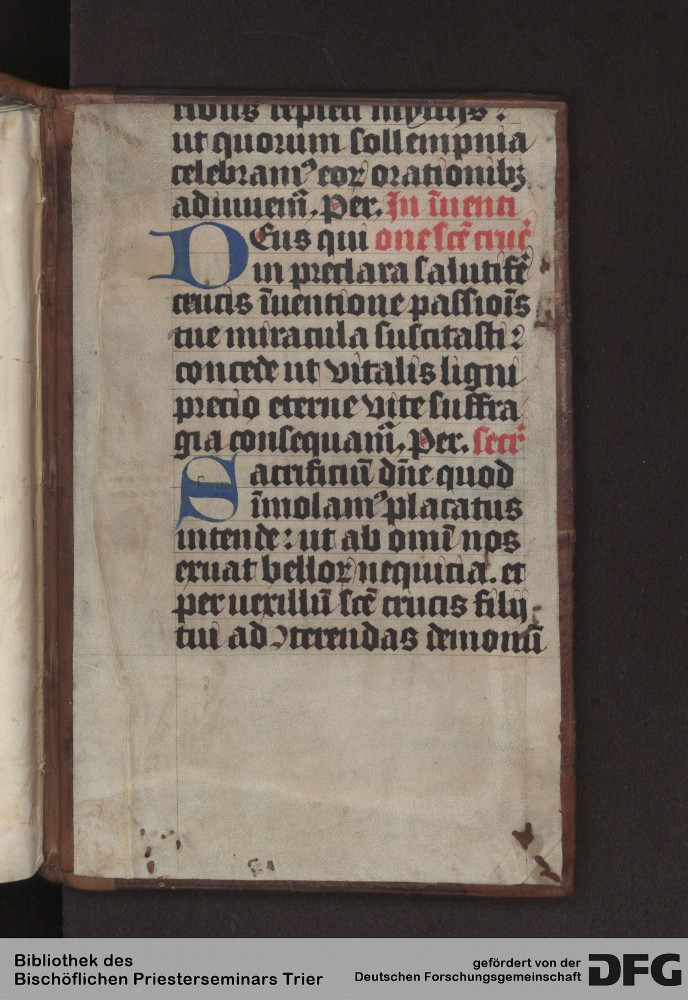 tionis repleti mysterijs :
ut quorum sollempnia
celebramꝰ eoꝝ orationibꝫ
adiuuem̃. Per. In ĩuenti
DEus qui one sc̃e cruc̃
in preclara salutifẽ
crucis ĩuentione passiõis
tue miracula suscitasti :
concede ut vitalis ligni
precio eterne vite suffra
gia consequam̃. Per. secr̃
Sacrificiũ dñe quod
ĩmolamꝰ placatus
intende : ut ab omĩ nos
eruat belloꝝ nequicia. et
per uexillũ sc̃e crucis filij
tui ad ꝯterendas demonũ
Bibliothek des
Bischöflichen Priesterseminars Trier
gefördert von der
Deutschen Forschungsgemeinschaft
DFG